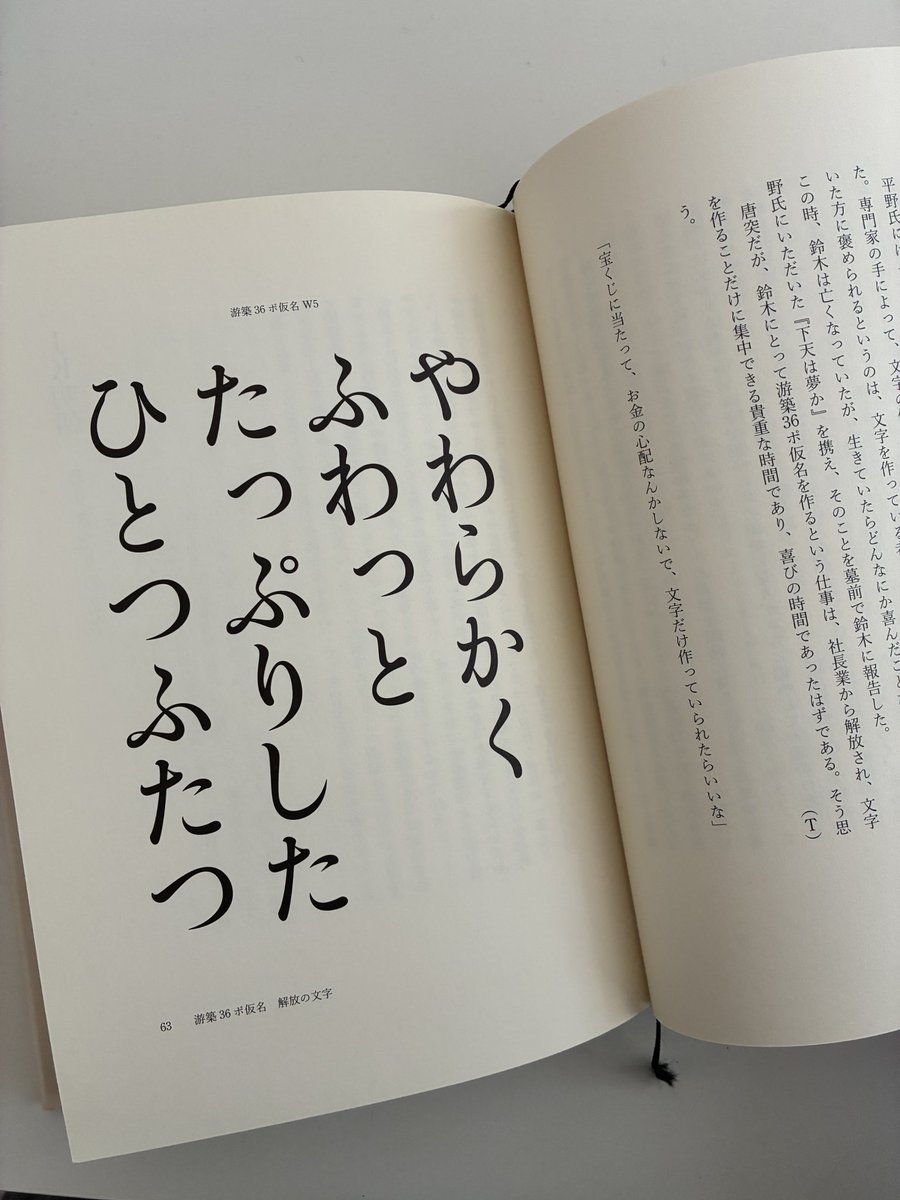 平野氏に
た。専門家の手によって、文字の
いた方に褒められるというのは、文字を作っている者
この時、鈴木は亡くなっていたが、生きていたらどんなにか喜んだこと
野氏にいただいた『下天は夢か』を携え、そのことを墓前で鈴木に報告した。
唐突だが、鈴木にとって游築36ポ仮名を作るという仕事は、社長業から解放され、文字
を作ることだけに集中できる貴重な時間であり、喜びの時間であったはずである。そう思
う。
（T）
「宝くじに当たって、お金の心配なんかしないで、文字だけ作っていられたらいいな」
游築36ポ仮名W5
やわらかく
ふわっと
たっぷりした
ひとつふたつ
63 游築36ポ仮名 解放の文字